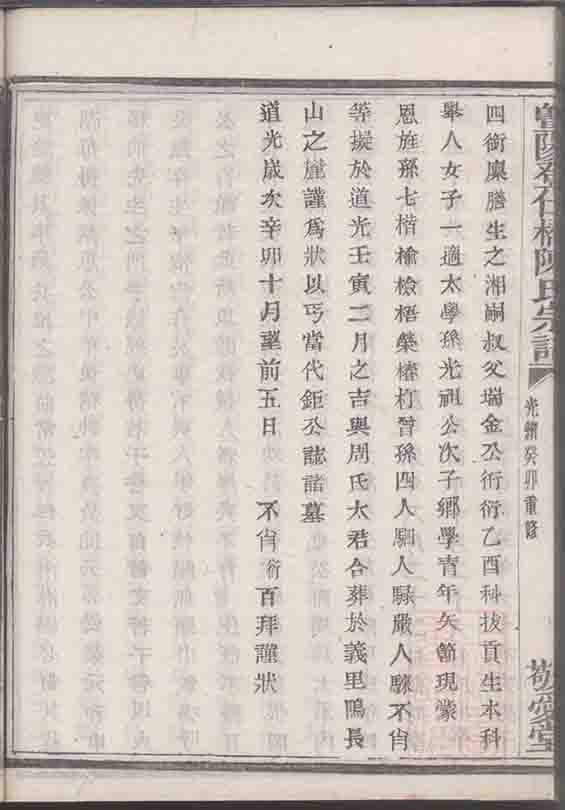 陳氏宗譜
光緒癸卯重修
敬愛堂
四衛廩膳生之湘嗣叔父瑞金公衍衍乙酉科拔貢生本科
舉人女子一適太學孫光祖公次子鄉學青年矢節現蒙
恩旌孫七楷榆檢梧榮椿杍曾孫四人馴人騄嚴人騋不肖
等擬於道光壬寅二月之吉與周氏太君合葬於義里鳴長
山之崖謹為狀以丐當代鉅公誌諸墓
道光歲次辛卯十月望前五日 不肖衍百拜謹狀